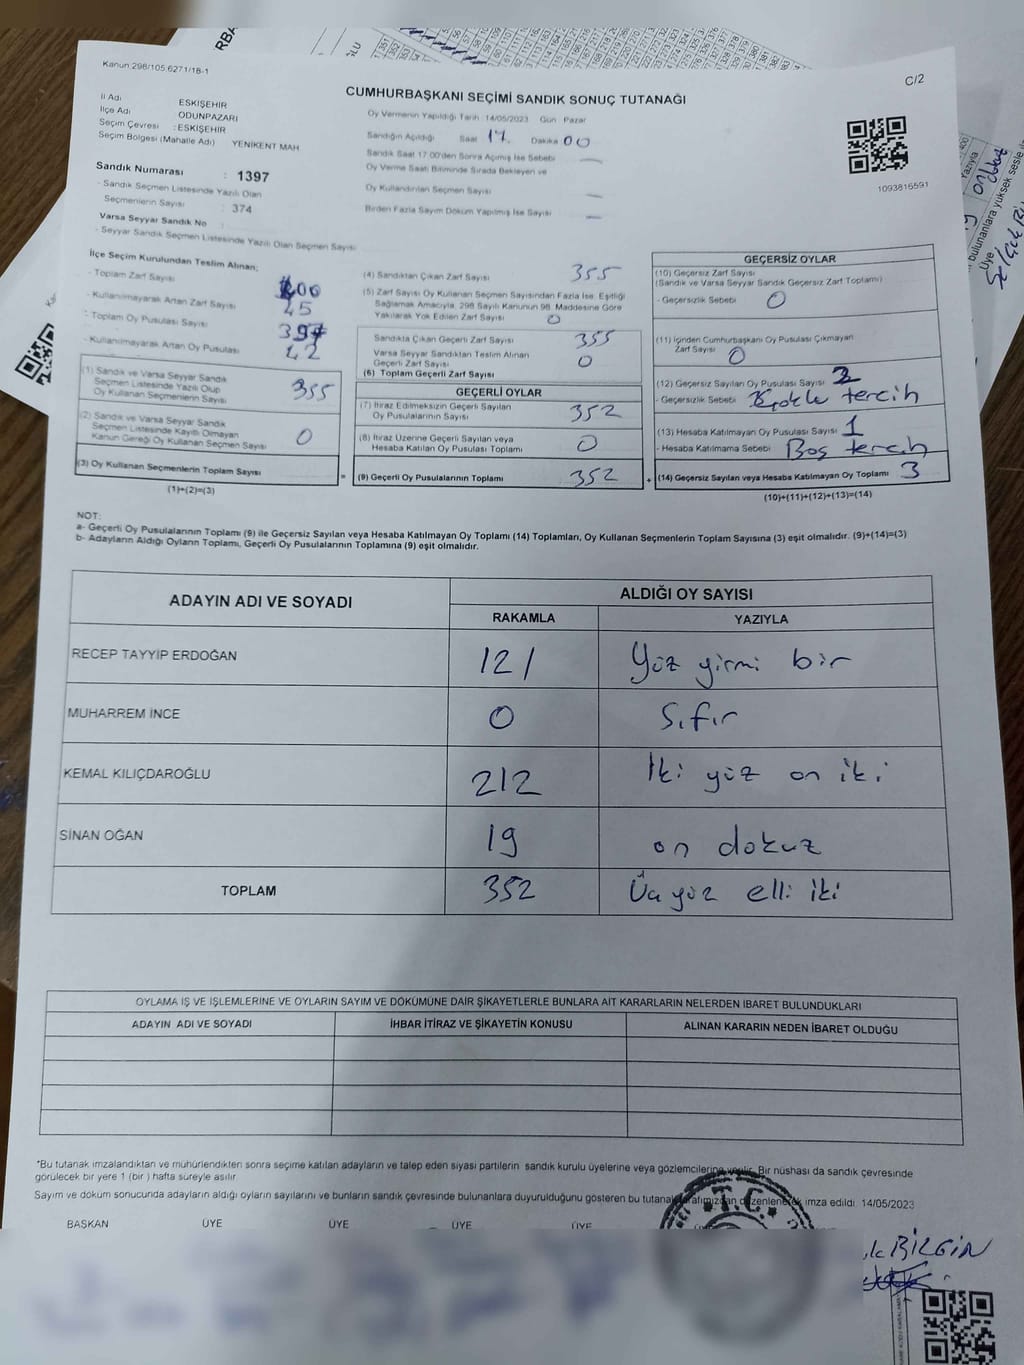 Kanun:298/105,6271/18-1
C/2
CUMHURBAŞKANI SEÇİMİ SANDIK SONUÇ TUTANAĞI
İl Adı ESKİŞEHİR
İlçe Adı ODUNPAZARI
Seçim Çevresi : ESKİŞEHİR
Seçim Bölgesi (Mahalle Adı) YENİKENT MAH
Oy Vermenin Yapıldığı Tarih 14/05/2023 Gün Pazar
Sandığın Açıldığı Saat 17. Dakika 00
Sandık Saat 17:00'den Sonra Açılmış İse Sebebi —
Oy Verme Saati Bitiminde Sırada Bekleyen ve
Oy Kullandırılan Seçmen Sayısı —
Birden Fazla Sayım Döküm Yapılmış İse Sayısı —
1093816591
Sandık Numarası : 1397
- Sandık Seçmen Listesinde Yazılı Olan
Seçmenlerin Sayısı : 374
Varsa Seyyar Sandık No :
- Seyyar Sandık Seçmen Listesinde Yazılı Olan Seçmen Sayısı
İlçe Seçim Kurulundan Teslim Alınan;
- Toplam Zarf Sayısı 400
- Kullanılmayarak Artan Zarf Sayısı 45
- Toplam Oy Pusulası Sayısı 397
- Kullanılmayarak Artan Oy Pusulası 42
(1) Sandık ve Varsa Seyyar Sandık
Seçmen Listesinde Yazılı Olup
Oy Kullanan Seçmenlerin Sayısı 355
(2) Sandık ve Varsa Seyyar Sandık
Seçmen Listesinde Kayıtlı Olmayan
Kanun Gereği Oy Kullanan Seçmen Sayısı 0
(3) Oy Kullanan Seçmenlerin Toplam Sayısı =
(1)+(2)=(3)
(4) Sandıktan Çıkan Zarf Sayısı 355
(5) Zarf Sayısı Oy Kullanan Seçmen Sayısından Fazla İse, Eşitliği
Sağlamak Amacıyla, 298 Sayılı Kanunun 98. Maddesine Göre
Yakılarak Yok Edilen Zarf Sayısı 0
Sandıkta Çıkan Geçerli Zarf Sayısı 355
Varsa Seyyar Sandıktan Teslim Alınan
Geçerli Zarf Sayısı 0
(6) Toplam Geçerli Zarf Sayısı
GEÇERLİ OYLAR
(7) İtiraz Edilmeksizin Geçerli Sayılan
Oy Pusulalarının Sayısı 352
(8) İtiraz Üzerine Geçerli Sayılan veya
Hesaba Katılan Oy Pusulası Toplamı 0
(9) Geçerli Oy Pusulalarının Toplamı 352 +
GEÇERSİZ OYLAR
(10) Geçersiz Zarf Sayısı
(Sandık ve Varsa Seyyar Sandık Geçersiz Zarf Toplamı)
- Geçersizlik Sebebi 0
(11) İçinden Cumhurbaşkanı Oy Pusulası Çıkmayan
Zarf Sayısı 0
(12) Geçersiz Sayılan Oy Pusulası Sayısı 2
- Geçersizlik Sebebi tercih
(13) Hesaba Katılmayan Oy Pusulası Sayısı 1
- Hesaba Katılmama Sebebi Boş tercih
(14) Geçersiz Sayılan veya Hesaba Katılmayan Oy Toplamı 3
(10)+(11)+(12)+(13)=(14)
NOT:
a- Geçerli Oy Pusulalarının Toplamı (9) ile Geçersiz Sayılan veya Hesaba Katılmayan Oy Toplamı (14) Toplamları, Oy Kullanan Seçmenlerin Toplam Sayısına (3) eşit olmalıdır. (9)+(14)=(3)
b- Adayların Aldığı Oyların Toplamı, Geçerli Oy Pusulalarının Toplamına (9) eşit olmalıdır.
ADAYIN ADI VE SOYADI
ALDIĞI OY SAYISI
RAKAMLA YAZIYLA
RECEP TAYYİP ERDOĞAN 121 Yüz yirmi bir
MUHARREM İNCE 0 Sıfır
KEMAL KILIÇDAROĞLU 212 İki yüz on iki
SİNAN OĞAN 19 on dokuz
TOPLAM 352 Üç yüz elli iki
OYLAMA İŞ VE İŞLEMLERİNE VE OYLARIN SAYIM VE DÖKÜMÜNE DAİR ŞİKAYETLERLE BUNLARA AİT KARARLARIN NELERDEN İBARET BULUNDUKLARI
ADAYIN ADI VE SOYADI İHBAR İTİRAZ VE ŞİKAYETİN KONUSU ALINAN KARARIN NEDEN İBARET OLDUĞU
*Bu tutanak imzalandıktan ve mühürlendikten sonra seçime katılan adayların ve talep eden siyasi partilerin sandık kurulu üyelerine veya gözlemcilerine verilir. Bir nüshası da sandık çevresinde
görülecek bir yere 1 (bir) hafta süreyle asılır
Sayım ve döküm sonucunda adayların aldığı oyların sayılarını ve bunların sandık çevresinde bulunanlara duyurulduğunu gösteren bu tutanak tarafımızdan düzenlenerek imza edildi 14/05/2023
BAŞKAN ÜYE ÜYE ÜYE ÜYE
T.C.
BİLGİN
Yazıyla
bulunanlara yüksek sesle
Üye
Selçuk